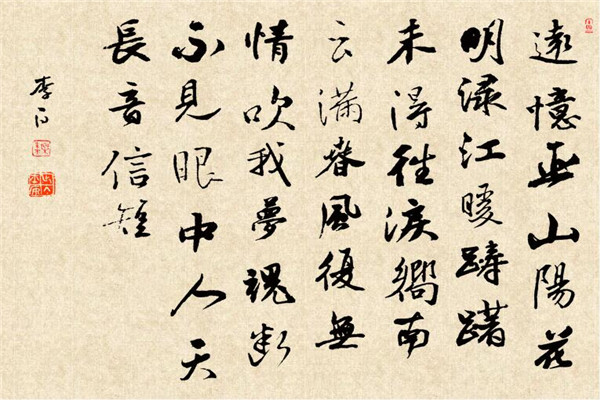 遠憶巫山陽花
明渌江暖躊躇
未得往淚嚮南
云滿春風復無
情吹我夢魂斷
不見眼中人天
長音信短
李白